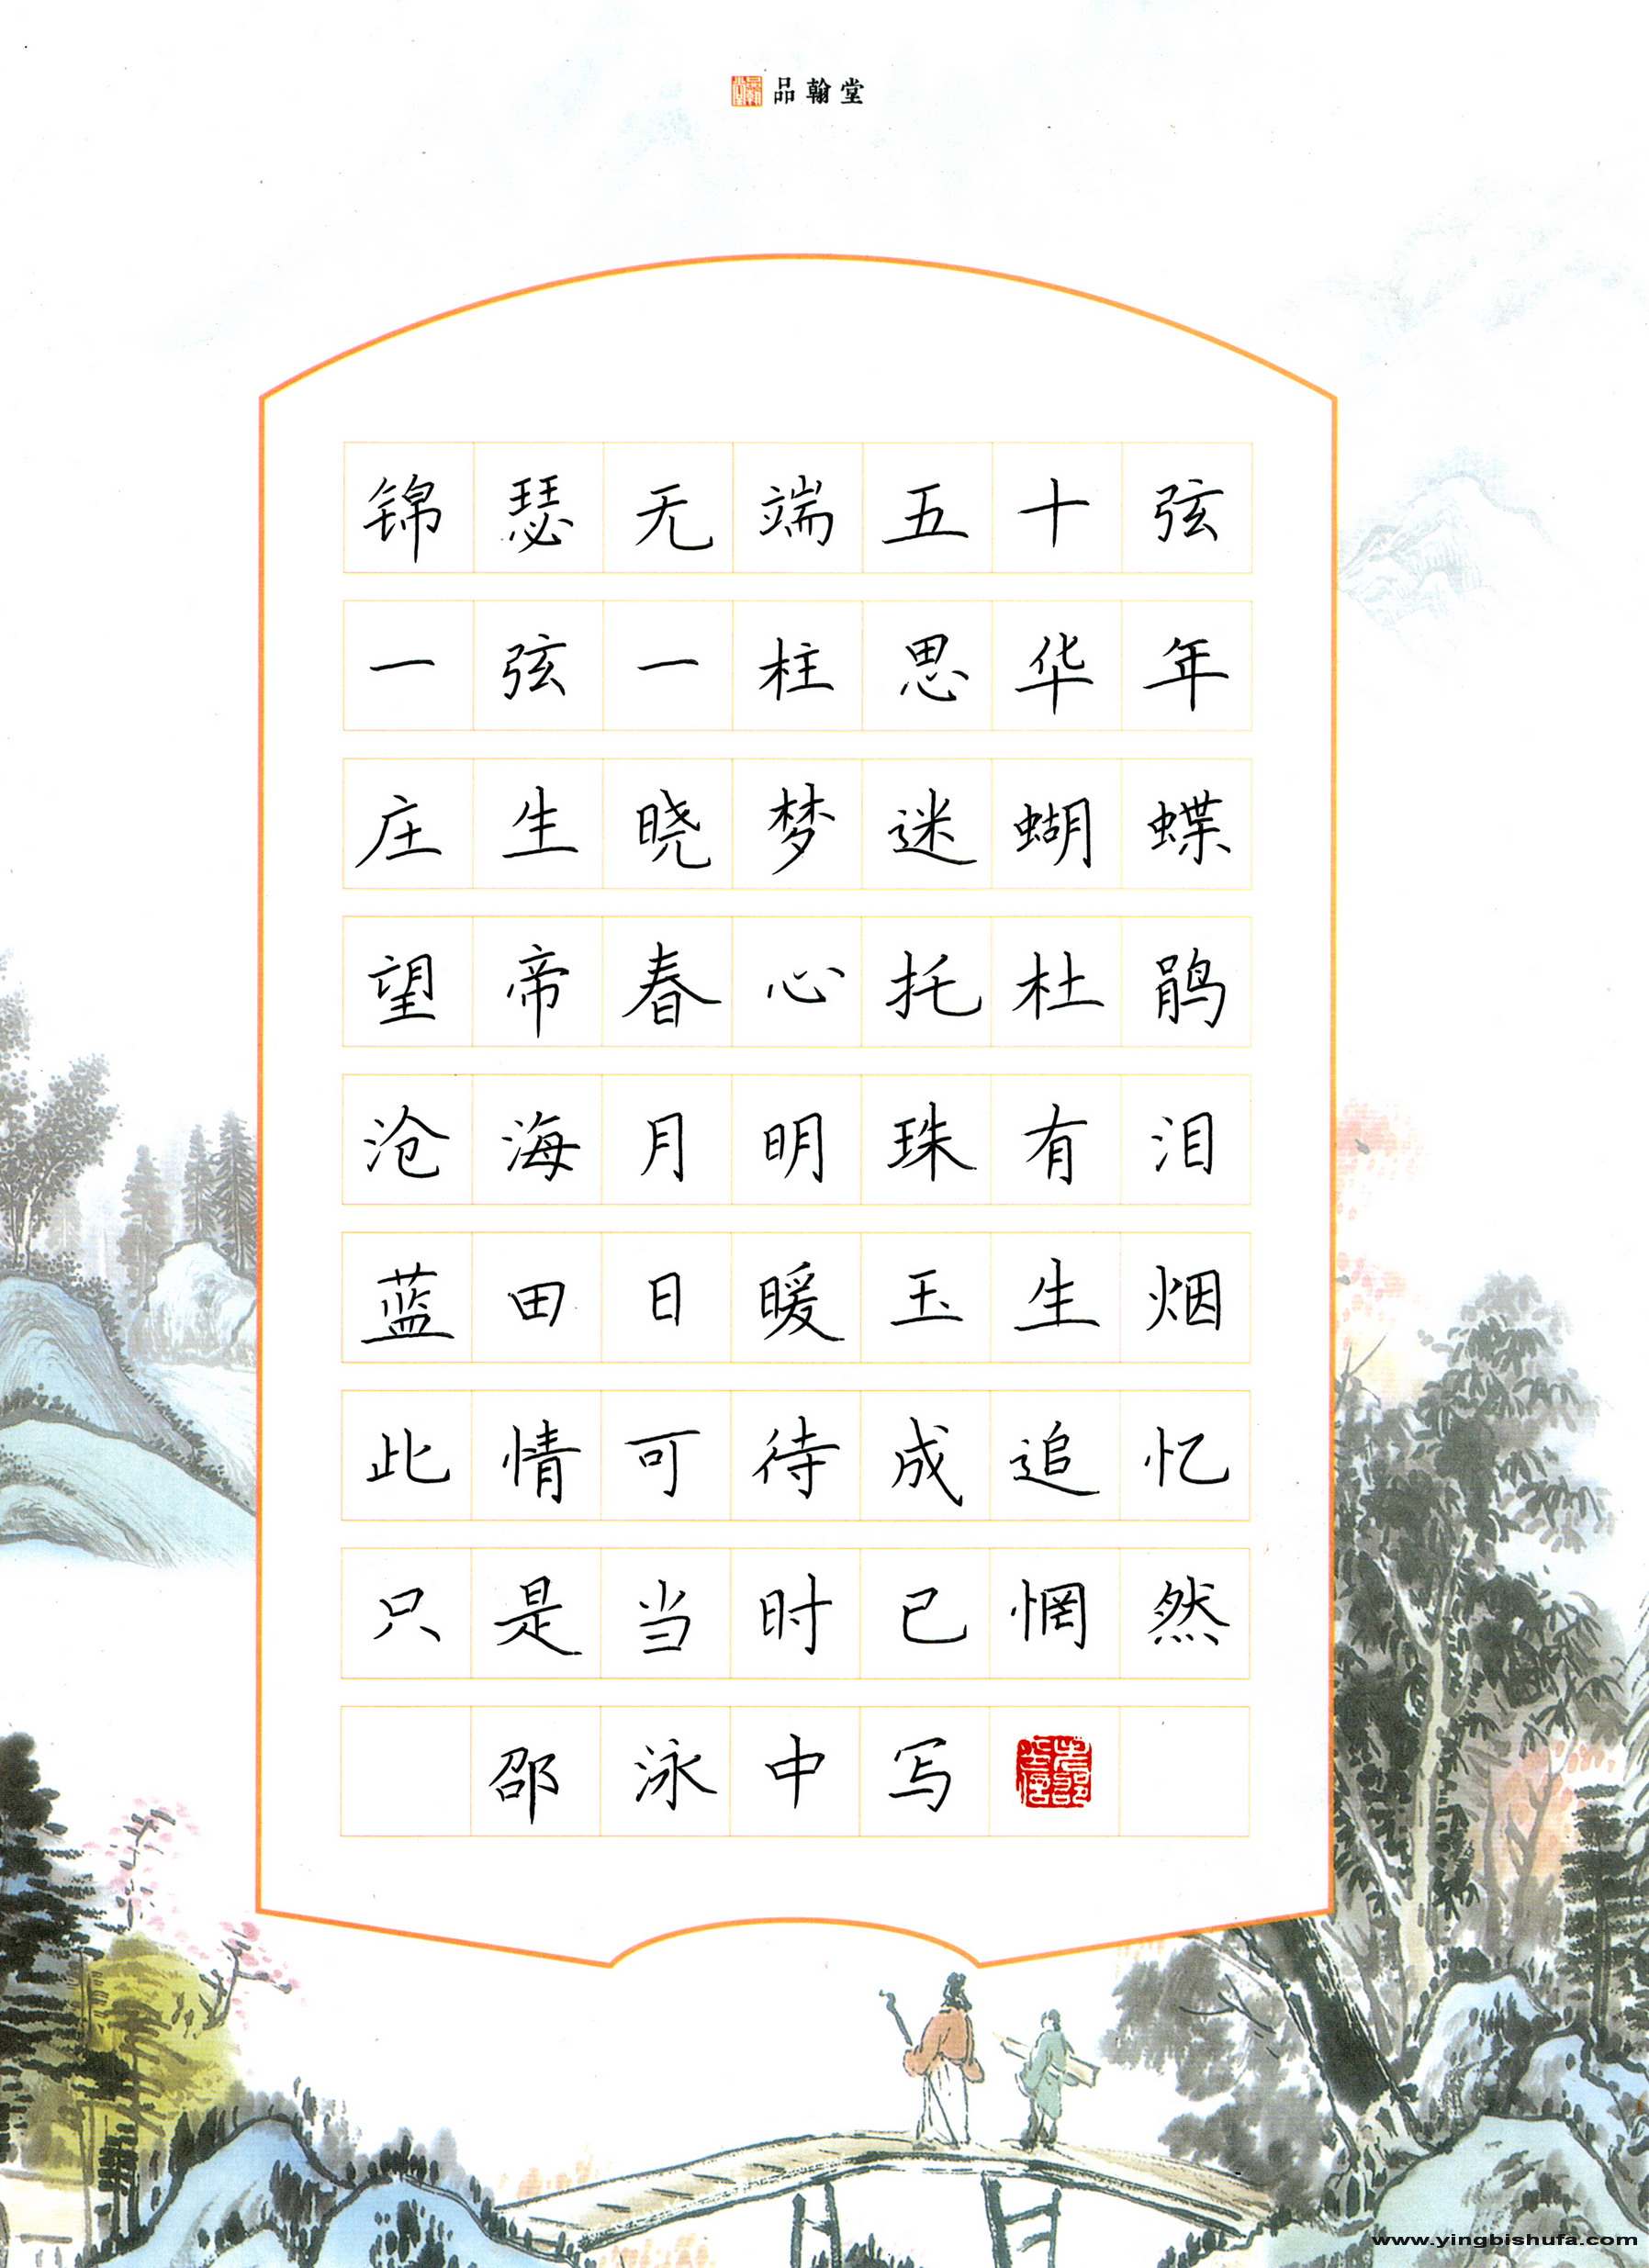 品翰堂
锦瑟无端五十弦
一弦一柱思华年
庄生晓梦迷蝴蝶
望帝春心托杜鹃
沧海月明珠有泪
蓝田日暖玉生烟
此情可待成追忆
只是当时已惘然
邵泳中写
www.yingbishufa.com